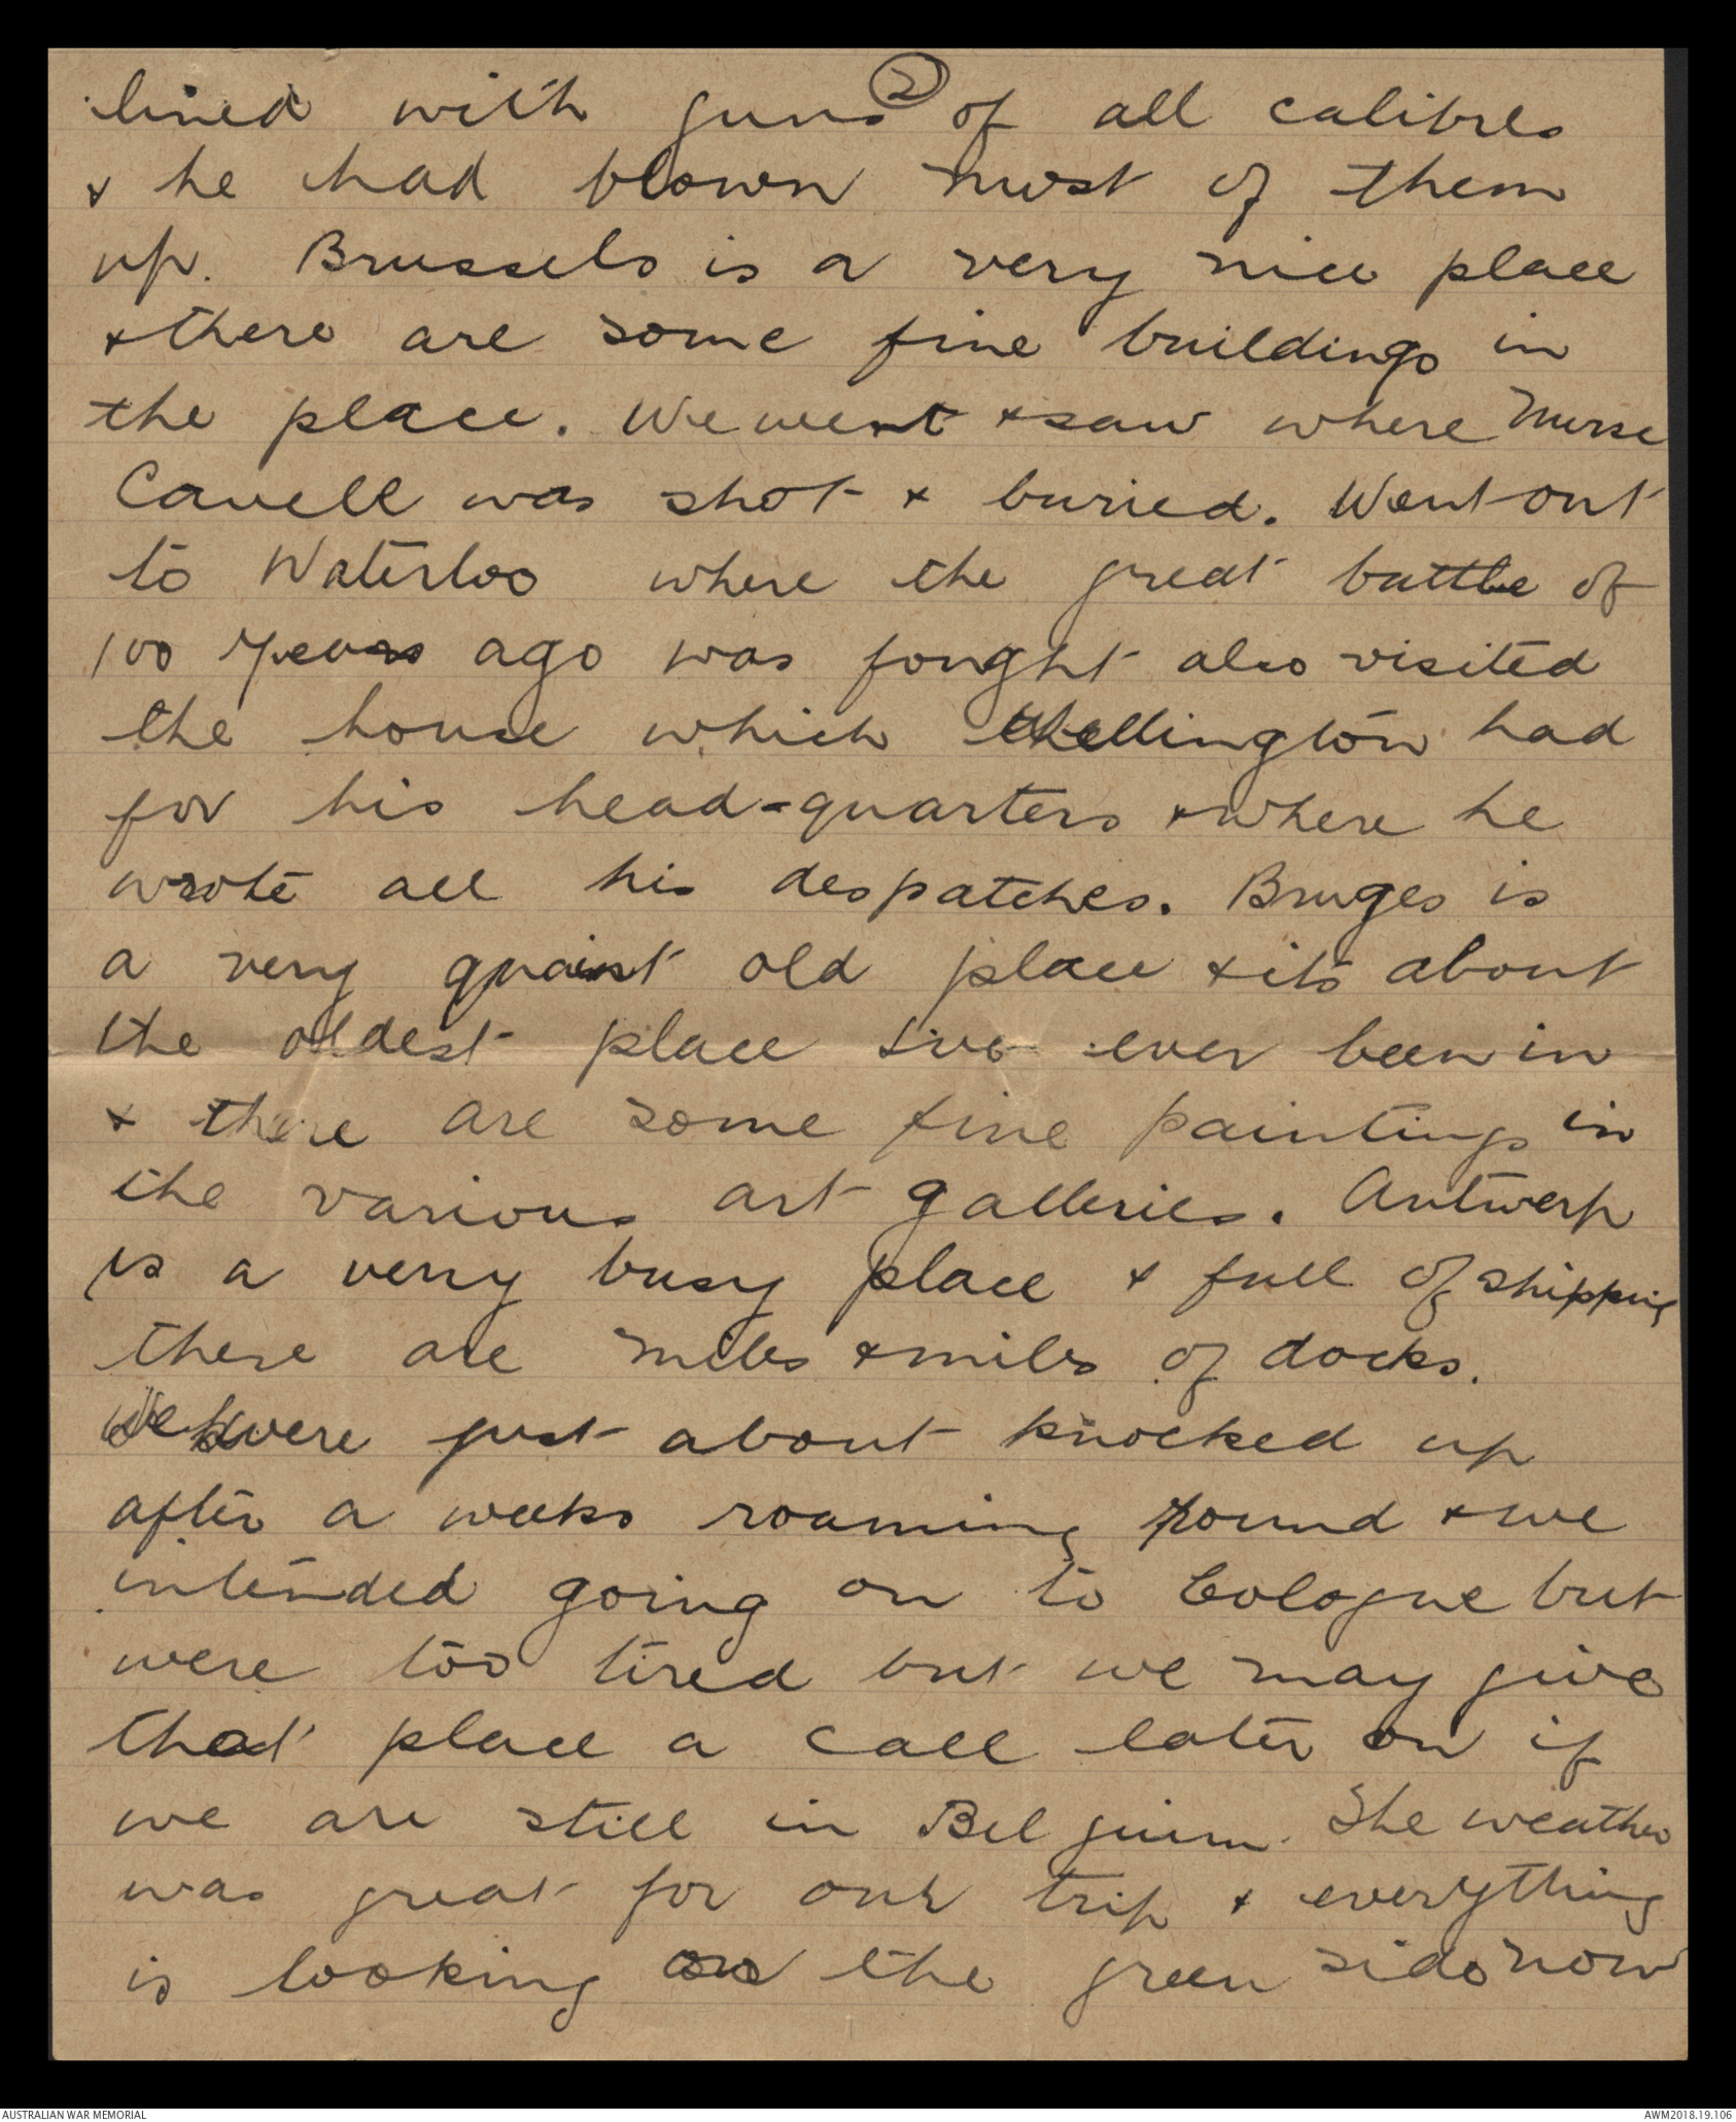 2
lined with guns of all calibres
& he had blown most of them
up. Brussels is a very nice place
& there are some fine buildings in
the place. We went & saw where Nurse
Cavell was shot & buried. Went out
to Waterloo where the great battle of
100 years ago was fought also visited
the house which Wellington had
for his head-quarters & where he
wrote all his despatches. Bruges is
a very quaint old place & its about
the oldest place I've ever been in
& there are some fine paintings in
the various art galleries. Antwerp
is a very busy place & full of shipping
there are miles & miles of docks.
We were just about knocked up
after a weeks roaming round & we
intended going on to Cologne but
were too tired but we may give
that place a call later on if
we are still in Belgium. The weather
was great for our trip & everything
is looking on the green side now
AUSTRALIAN WAR MEMORIAL
AWM2018.19.106